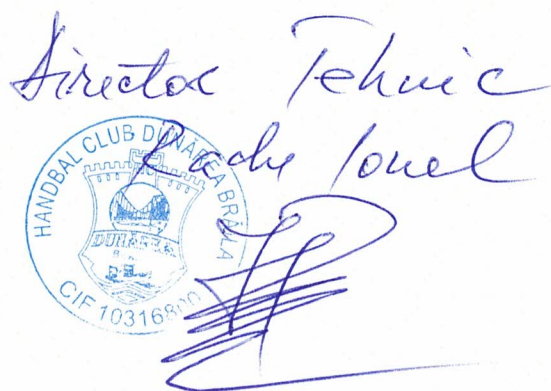 Director Tehnic
Radu Ionel
HANDBAL CLUB DUNĂREA BRĂILA
DUNĂREA
CIF 10316800